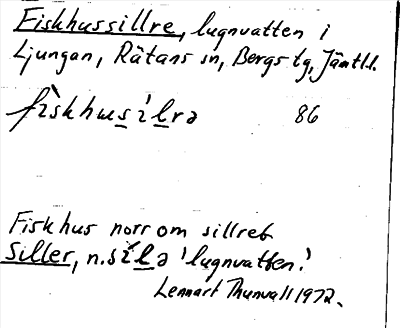 Fiskhussillre, lugnvatten i
Ljungan, Rätans sn, Bergs tg, Jämtl.
fìskhusílrə 86
Fiskhus norr om sillret
Siller, n. sílə 'lugnvatten.'
Lennart Thunvall 1972.